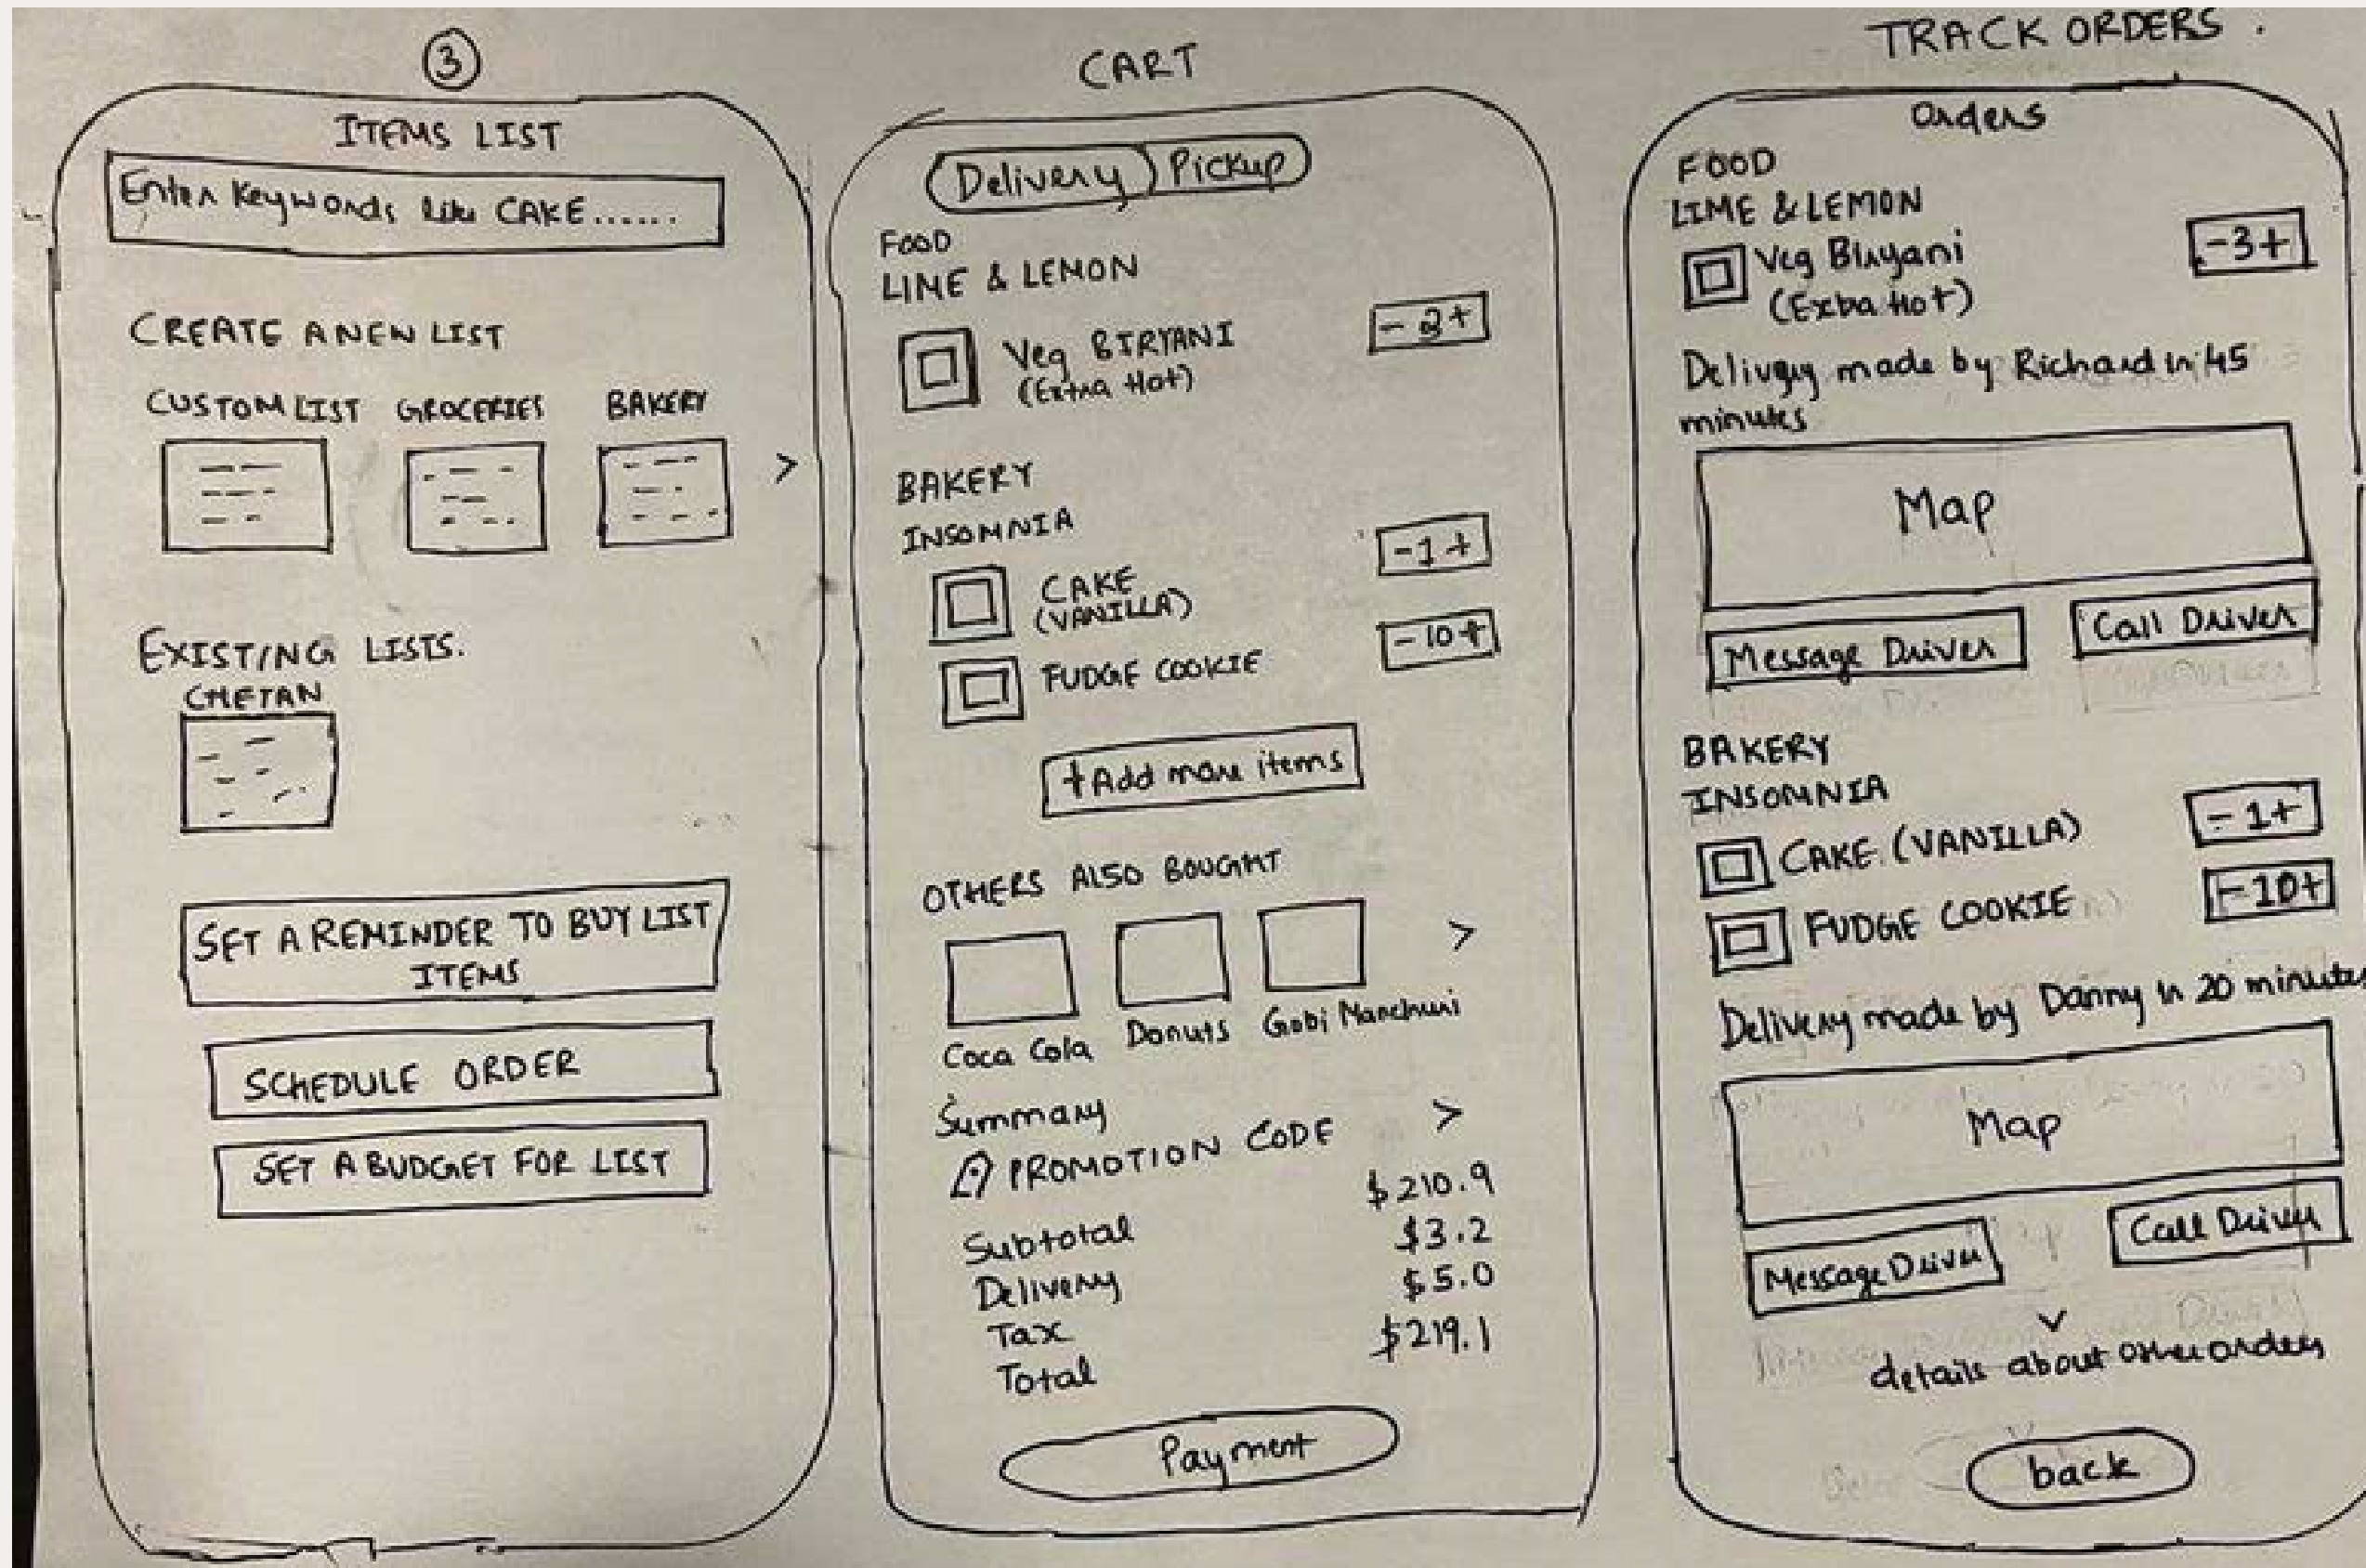 3
ITEMS LIST
Enter Keywords like CAKE......
CREATE A NEW LIST
CUSTOM LIST GROCERIES BAKERY
>
EXISTING LISTS.
CHETAN
SET A REMINDER TO BUY LIST
ITEMS
SCHEDULE ORDER
SET A BUDGET FOR LIST
CART
Delivery Pickup
FOOD
LIME & LEMON
Veg BIRYANI - 2 +
(Extra Hot)
BAKERY
INSOMNIA
CAKE -1+
(VANILLA)
FUDGE COOKIE -10+
+Add more items
OTHERS ALSO BOUGHT
>
Coca Cola Donuts Gobi Manchuri
Summary
PROMOTION CODE >
$210.9
Subtotal $3.2
Delivery $5.0
Tax $219.1
Total
Payment
TRACK ORDERS.
Orders
FOOD
LIME & LEMON
Veg Biryani -3+
(Extra Hot)
Delivery made by Richard in 45
minutes
Map
Message Driver Call Driver
BAKERY
INSOMNIA
CAKE (VANILLA) -1+
FUDGE COOKIE -10+
Delivery made by Danny in 20 minutes
Map
Message Driver Call Driver
details about other orders
back